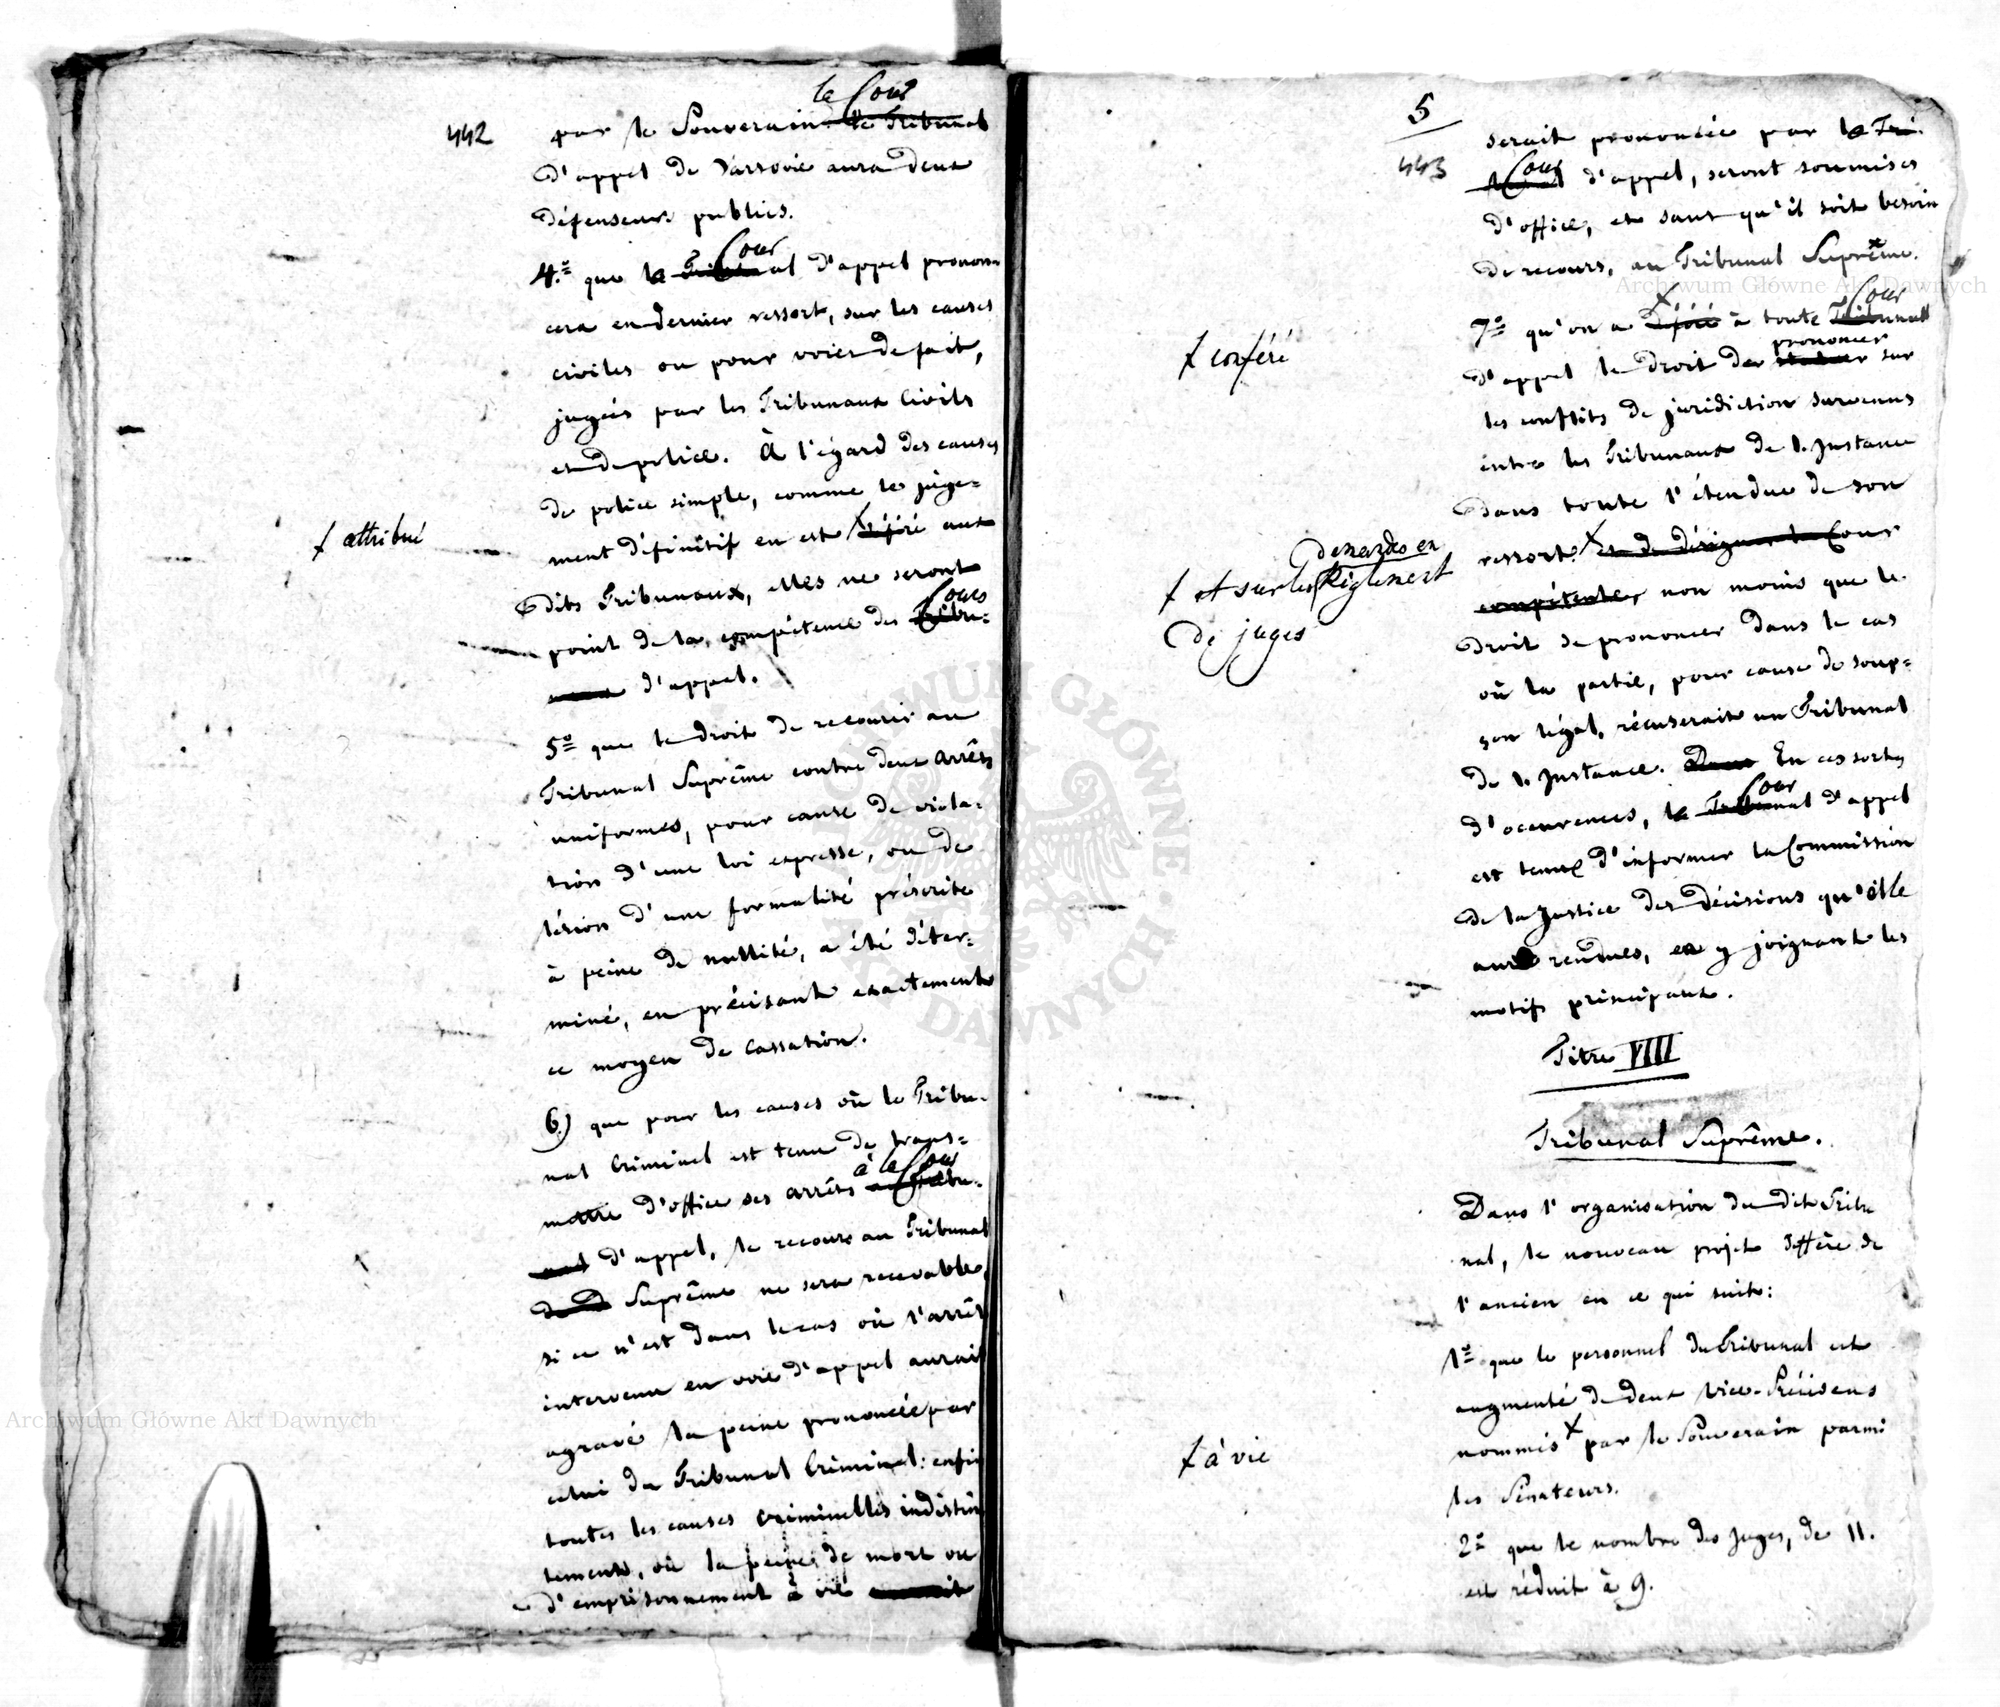 442
la Cour
par le Souverain. le Tribunal
d'appel de Varsovie aura deux
défenseurs publics.
Cour
4.º que la Tribunal d'appel pronon-
cera en dernier ressort, sur les causes
civiles ou pour voies de fait,
jugées par les Tribunaux Civils
et de police. À l'égard des causes
de police simple, comme le juge=
ment définitif en est déféré aux
ƚ attribué
dits Tribunaux, elles ne seront
Cours
point de la compétence des Tribu=
naux d'appel.
5º que le droit de recourir au
Tribunal Suprême contre deux arrêts
uniformes, pour cause de viola-
tion d'une loi expresse, ou de
lésion d'une formalité préscrite
à peine de nullité, a été déter-
miné, en précisant exactement
ce moyen de Cassation.
6.) que pour les causes où le Tribu-
nal Criminel est tenu de trans=
à la Cour
mettre d'office ses arrêts au Tribu-
nal d'appel, le recours au Tribunal
Suprême ne sera recevable,
si ce n'est dans le cas où l'arrêt
intervenu en voie d'appel aurait
agravé la peine prononcée par
celui du Tribunal Criminel: enfin
toutes les causes criminelles indistin
tement, où la peine de mort ou
d'emprisonnement à vie
5
443
serait prononcée par la Tri-
Cour
bunal d'appel, seront soumises
d'office, et sans qu'il soit besoin
de recours, au Tribunal Suprême.
Cour
7º qu'on a déféré à toute Tribunal
ƚ conféré
prononcer
d'appel le droit de statuer sur
les conflits de juridiction survenus
entre les Tribunaux de 1. Instance
dans toute l'étendue de son
ressort et de désigner la Cour
ƚ et sur les demandes en
Réglement
de juges
compétente, non moins que le
droit de prononcer dans le cas
où la partie, pour cause de soup=
çon légal, récuserait un Tribunal
de 1. Instance. Dans En ces sortes
Cour
d'occurences, la Tribunal d'appel
est tenue d'informer la Commission
de la Justice des décisions qu'elle
aura rendues, en y joignant les
motifs principaux.
Titre VIII
Tribunal Suprême.
Dans l'organisation du dit Tribu
nal, le nouveau projet diffère de
l'ancien en ce qui suit:
1º que le personnel du Tribunal est
augmenté de deux Vice-Présidens
nommés par le Souverain parmi
ƚ à vie
les Sénateurs.
2º que le nombre des juges, de 11.
est réduit à 9.
Archiwum Główne Akt Dawnych
Archiwum Główne Akt Dawnych
ARCHIWUM GŁÓWNE AKT DAWNYCH